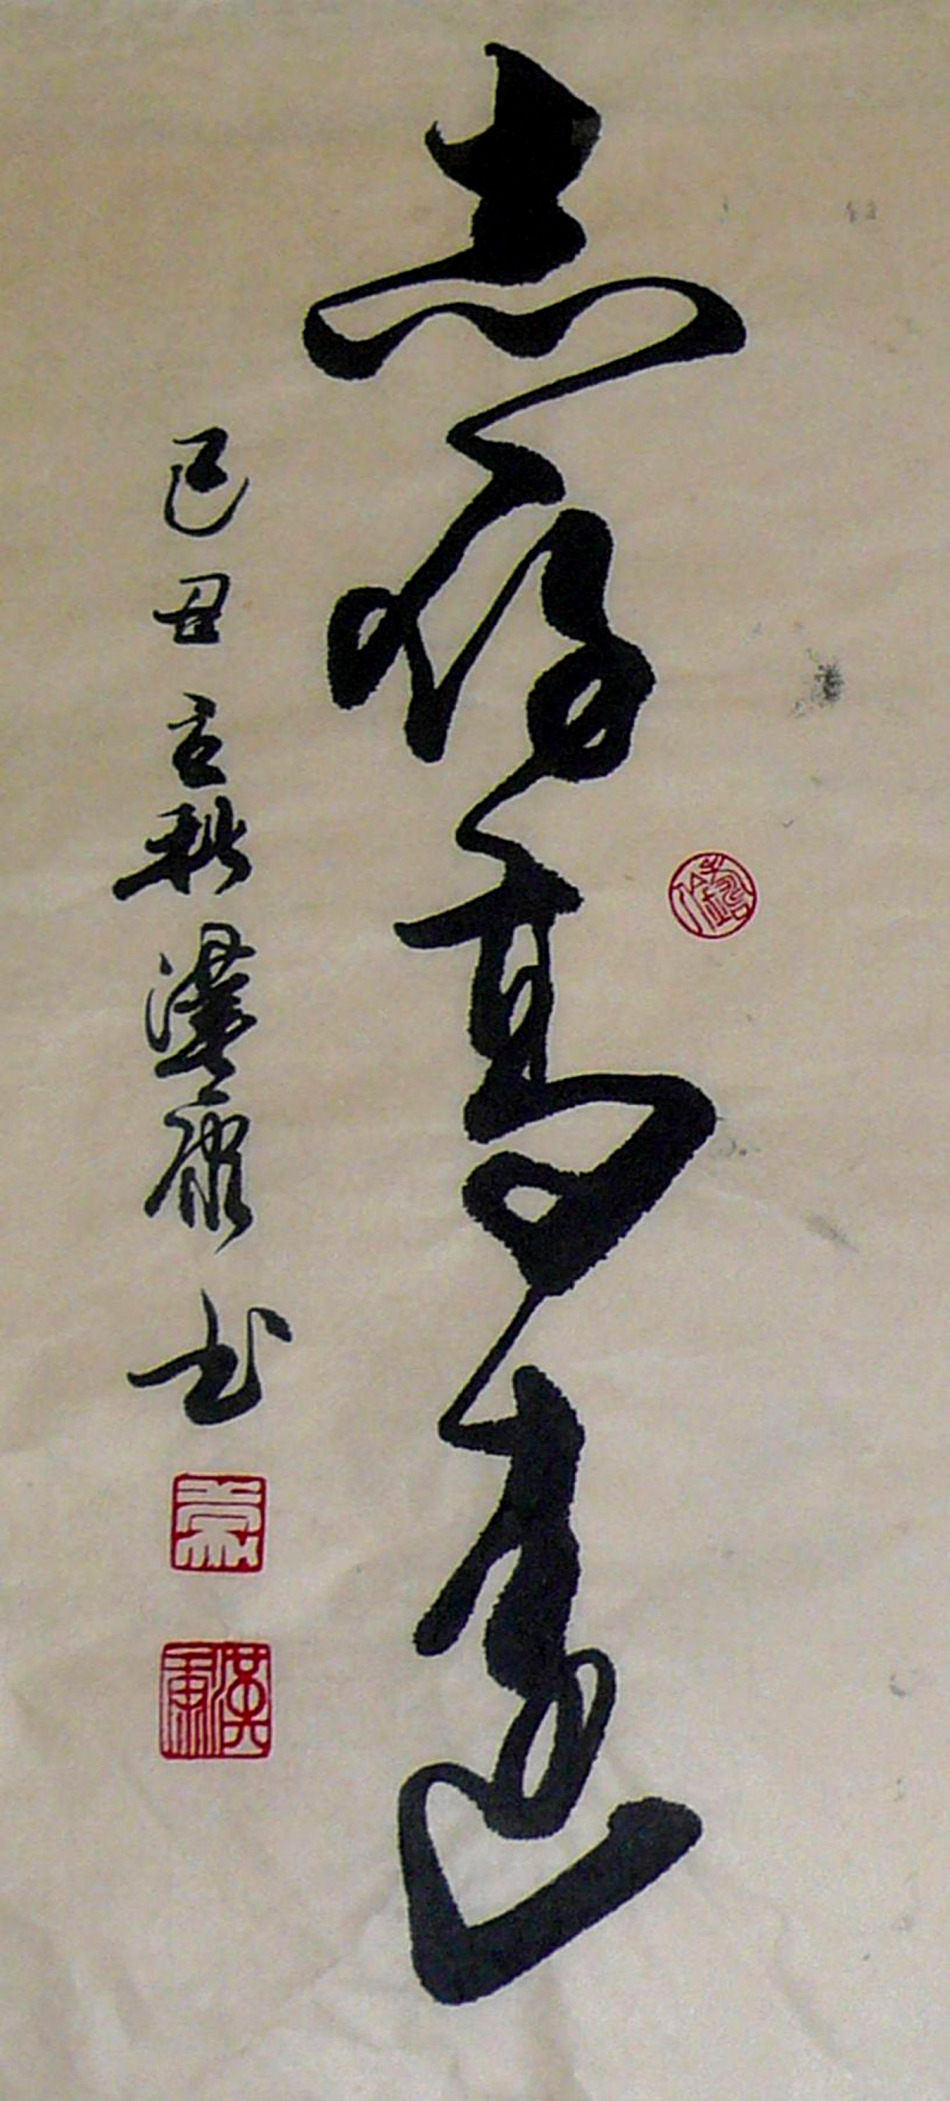 志存高远
己丑立秋漢康书